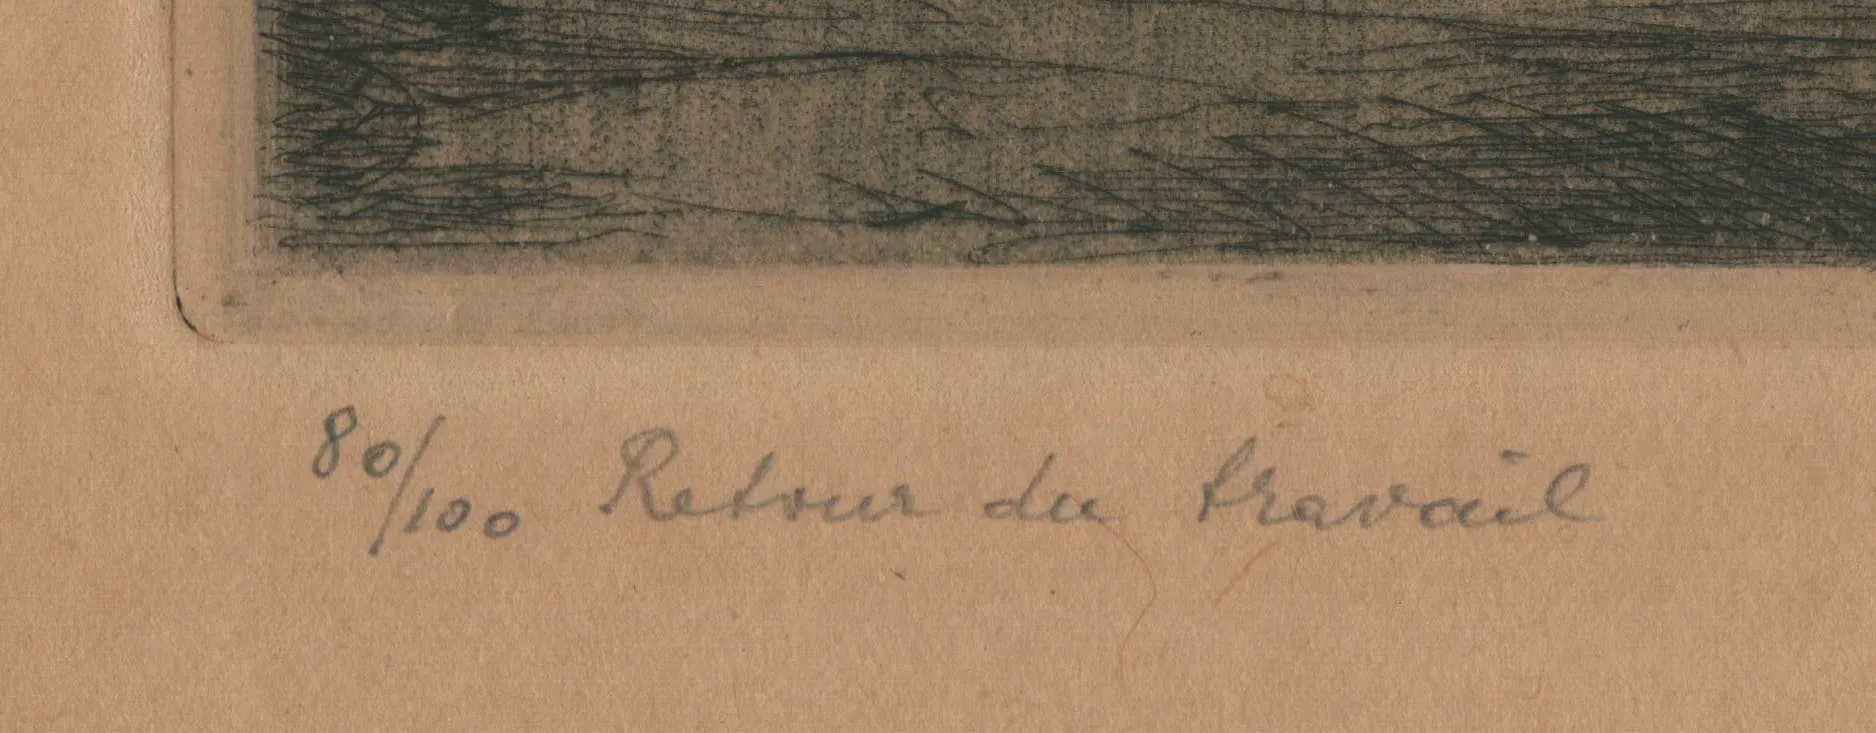 80/100 Retour du travail